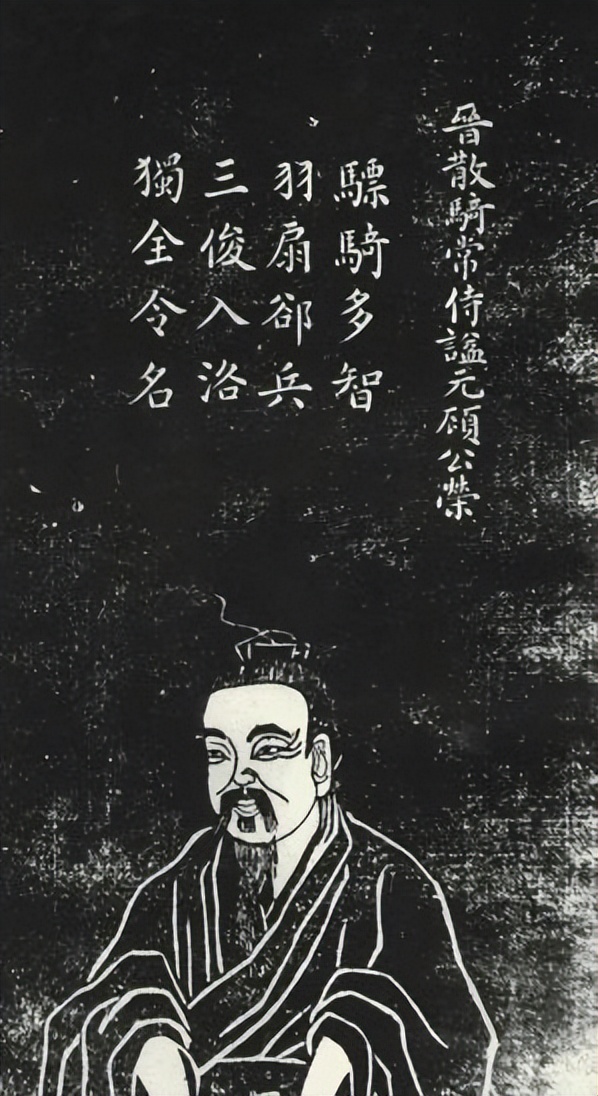 晉散騎常侍謚元顧公榮
驃騎多智
羽扇卻兵
三俊入洛
獨全令名